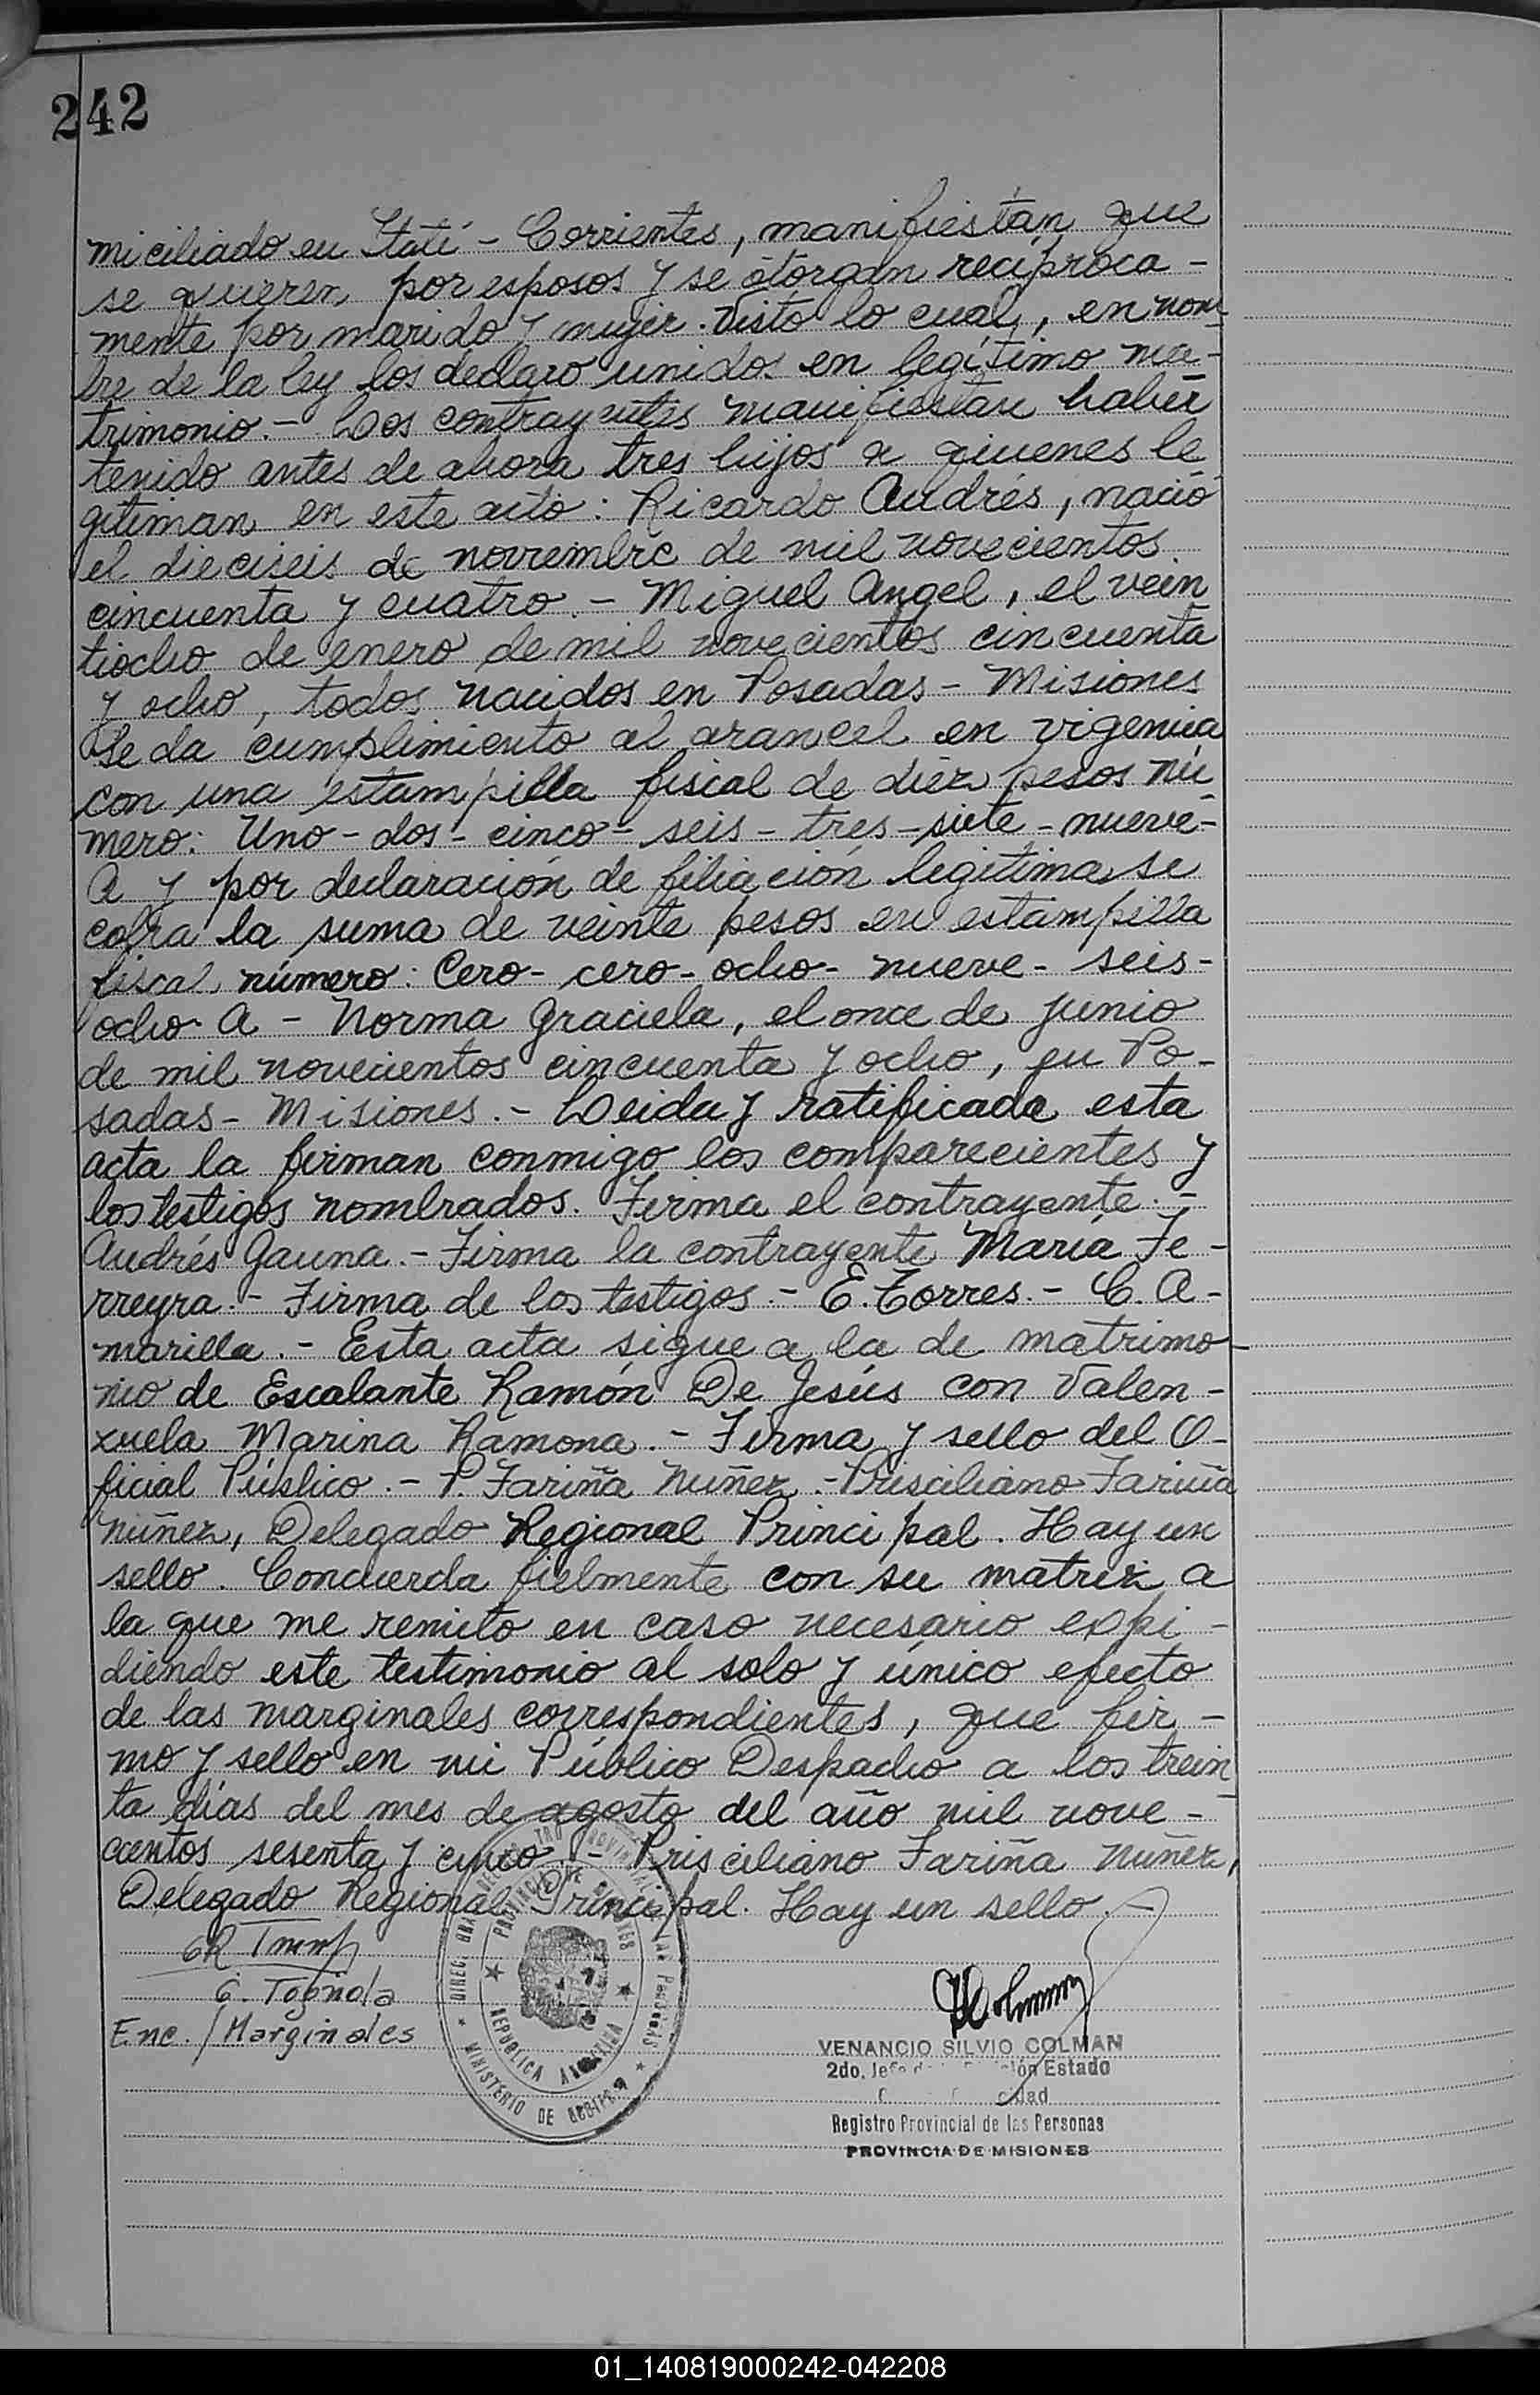 242
miciliado en Itatí - Corrientes, manifiestan que
se quieren por esposos y se otorgan recíproca -
mente por marido y mujer. Visto lo cual, en nom-
bre de la ley los declaro unidos en legítimo ma-
trimonio. - Los contrayentes manifiestan haber
tenido antes de ahora tres hijos a quienes le
gitiman en este acto: Ricardo Andrés, nació
el dieciseis de noviembre de mil novecientos
cincuenta y cuatro. - Miguel Angel, el vein
tiocho de enero de mil novecientos cincuenta
y ocho, todos nacidos en Posadas - Misiones
Se da cumplimiento al arancel en vigencia
con una estampilla fiscal de diez pesos nú
mero: Uno - dos - cinco - seis - tres - siete - nueve -
A y por declaración de filiación legítima se
cobra la suma de veinte pesos en estampilla
fiscal número: Cero - cero - ocho - nueve - seis -
ocho A - Norma Graciela, el once de junio
de mil novecientos cincuenta y ocho, en Po -
sadas - Misiones. - Leida y ratificada esta
acta la firman conmigo los comparecientes y
los testigos nombrados. Firma el contrayente. -
Andrés Gauna. - Firma la contrayente María Fe -
rreyra. - Firma de los testigos. - E. Torres. - C. A -
marilla. - Esta acta sigue a la de matrimo -
nio de Escalante Ramón De Jesús con Valen -
zuela Marina Ramona. - Firma y sello del O -
ficial Público. - P. Fariña Nuñez. - Prisciliano Fariña
Nuñez, Delegado Regional Principal. Hay un
sello. Concuerda fielmente con su matriz a
la que me remito en caso necesario expi -
diendo este testimonio al solo y único efecto
de las marginales correspondientes, que fir -
mo y sello en mi Público Despacho a los trein
ta días del mes de agosto del año mil nove -
cientos sesenta y cinco. - Prisciliano Fariña Nuñez,
Delegado Regional Principal. Hay un sello. -
G. Tognola
Enc. / Marginales
PROVINCIA DE MISIONES
REPUBLICA ARGENTINA
MINISTERIO DE
VENANCIO SILVIO COLMAN
2do. Jefe Estado
Registro Provincial de las Personas
PROVINCIA DE MISIONES
01_140819000242-042208